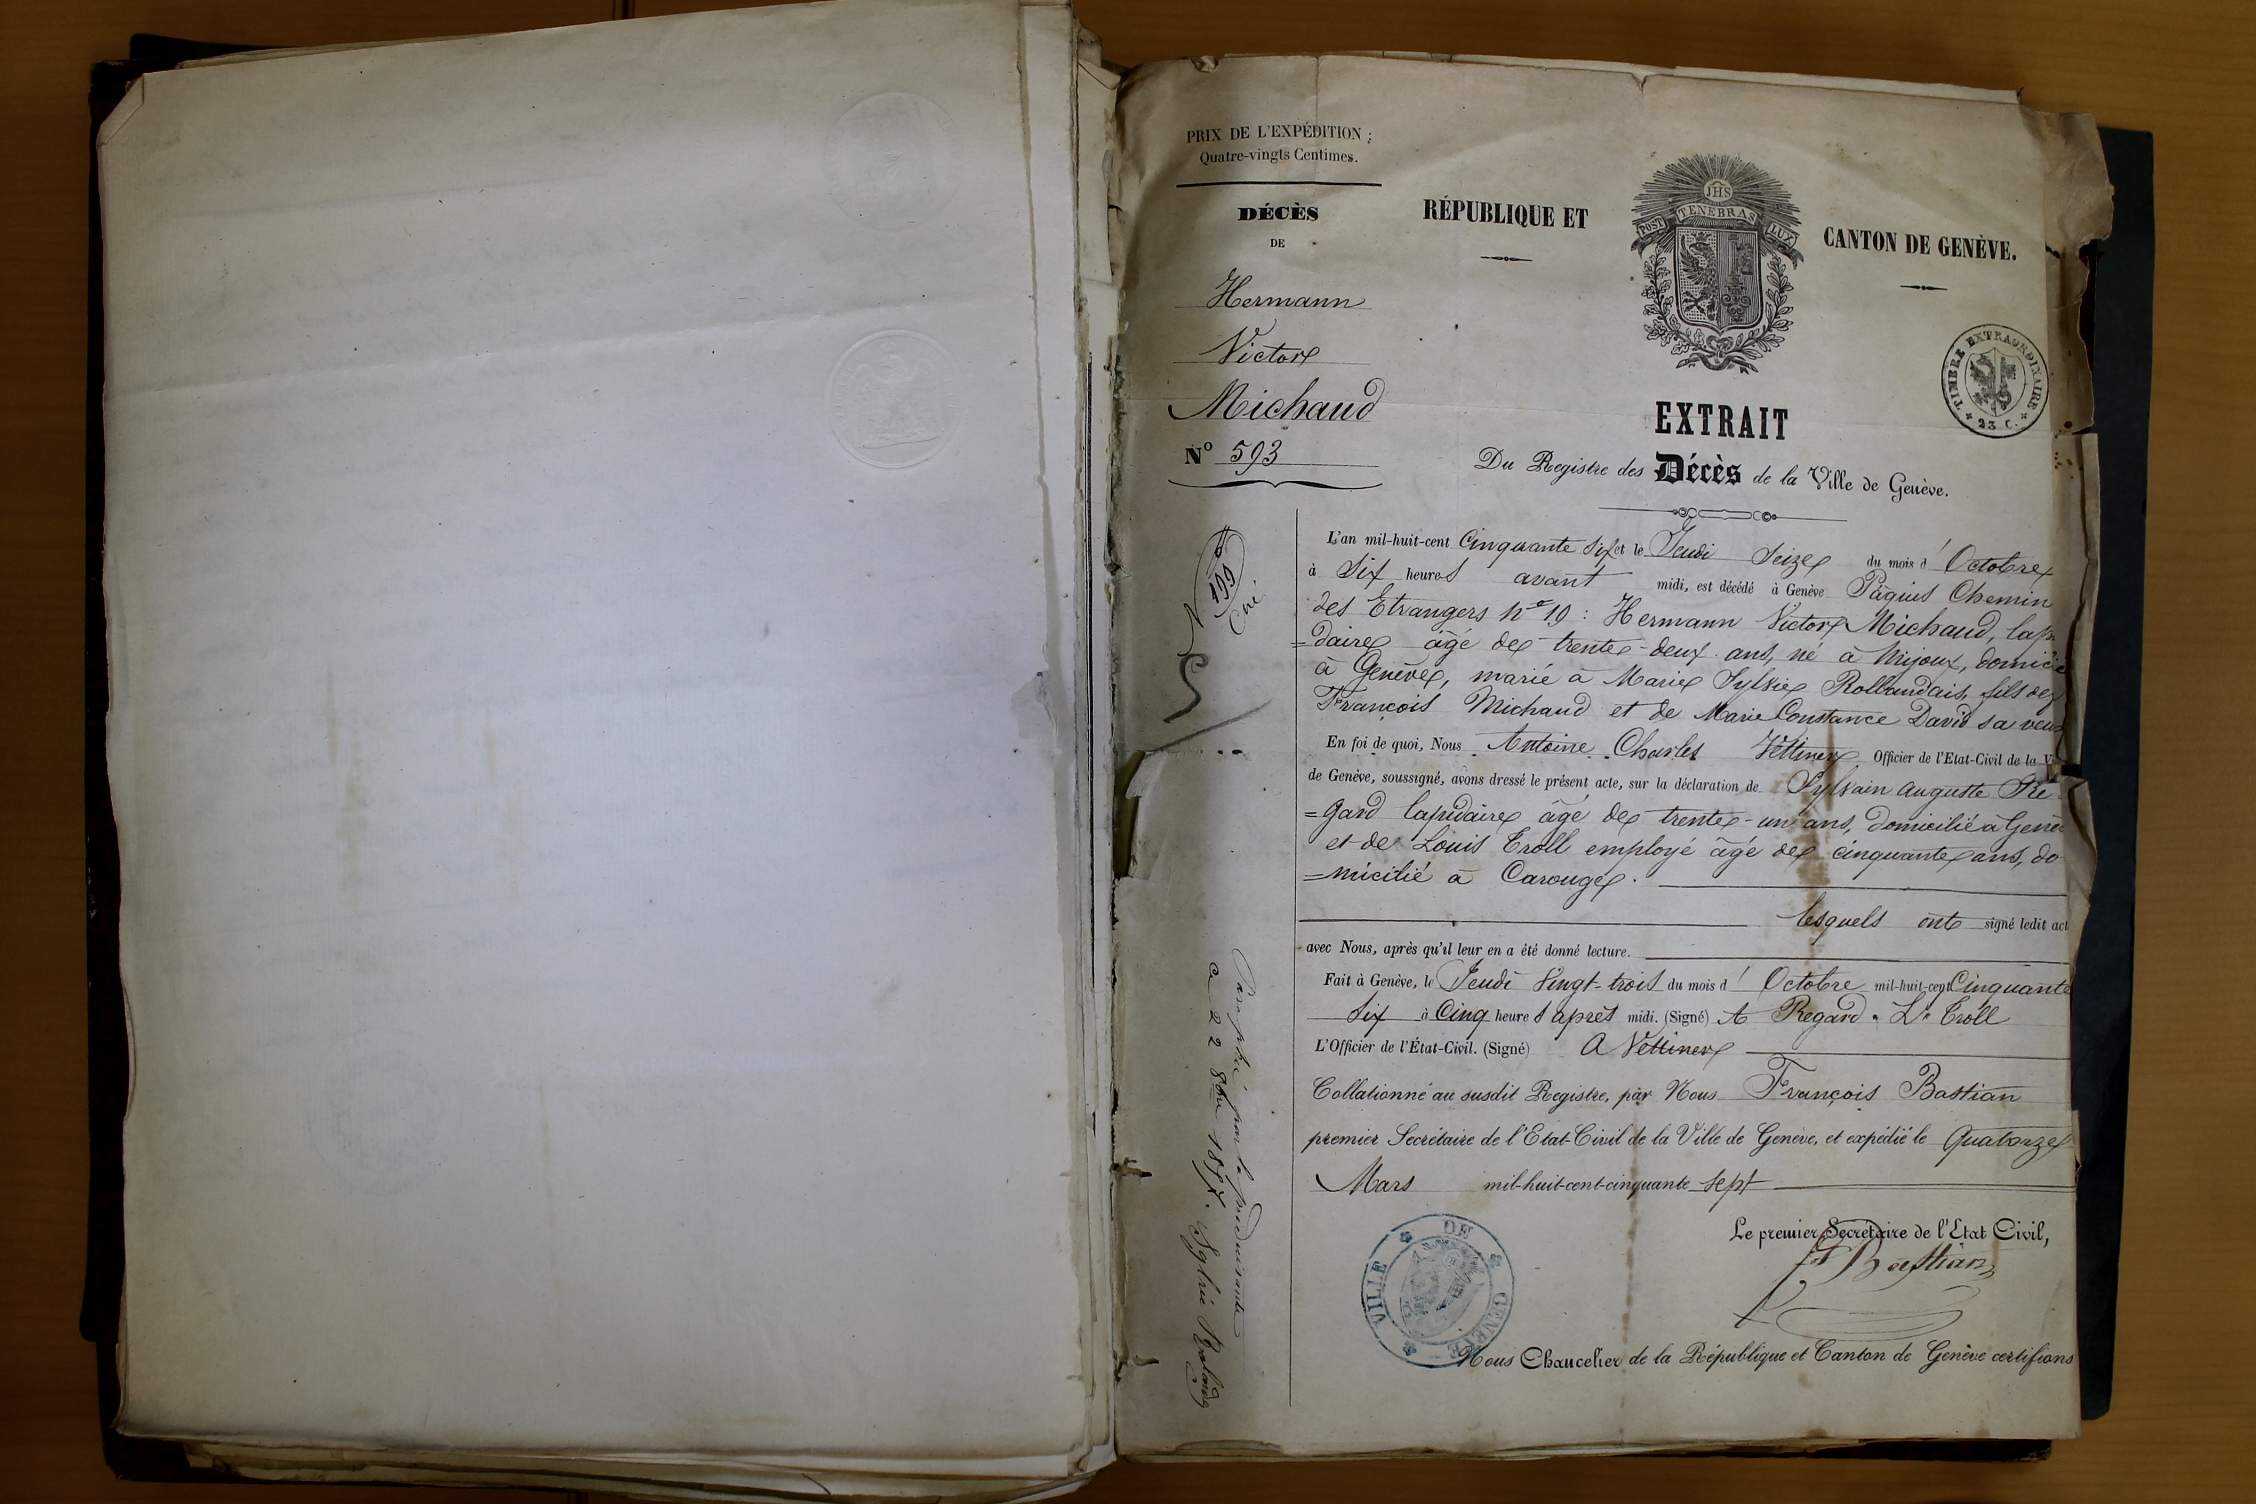 PRIX DE L'EXPÉDITION :
Quatre-vingts Centimes.
DÉCÈS
DE
Hermann
Victor
Michaud
No 593
RÉPUBLIQUE ET
JHS
POST TENEBRAS LUX
CANTON DE GENÈVE.
* TIMBRE EXTRAORDINAIRE *
23 C.
EXTRAIT
Du Registre des Décès de la Ville de Genève.
L'an mil-huit-cent Cinquante Six et le Jeudi Seize du mois d' Octobre
à Six heures avant midi, est décédé à Genève Pâquis Chemin
des Etrangers No 19 : Hermann Victor Michaud, lapi
=daire âgé de trente-deux ans, né à Mijoux, domicil
à Genève, marié à Marie Sylvie Rollandais, fils de
François Michaud et de Marie Constance David sa veuv
En foi de quoi, Nous Antoine Charles Vettiner Officier de l'Etat-Civil de la V
de Genève, soussigné, avons dressé le présent acte, sur la déclaration de Sylvain Auguste Re
=gard lapidaire âgé de trente-un ans, domicilié à Genè
et de Louis Troll employé âgé de cinquante ans, do
=micilié à Carouge.
lesquels ont signé ledit act
avec Nous, après qu'il leur en a été donné lecture.
Fait à Genève, le Jeudi Vingt-trois du mois d' Octobre mil-huit-cent Cinquante
Six à Cinq heures après midi. (Signé) A Regard . Ls Troll
L'Officier de l'État-Civil. (Signé) A Vettiner
Collationné au susdit Registre, par Nous François Bastian
premier Secrétaire de l'Etat-Civil de la Ville de Genève, et expédié le Quatorze
Mars mil-huit-cent-cinquante sept
Le premier Secrétaire de l'Etat Civil,
F Bastian
VILLE DE GENEVE
Nous Chancelier de la République et Canton de Genève certifions
Paraphé par la produisante
ce 22 8bre 1857. Sylvie Roland